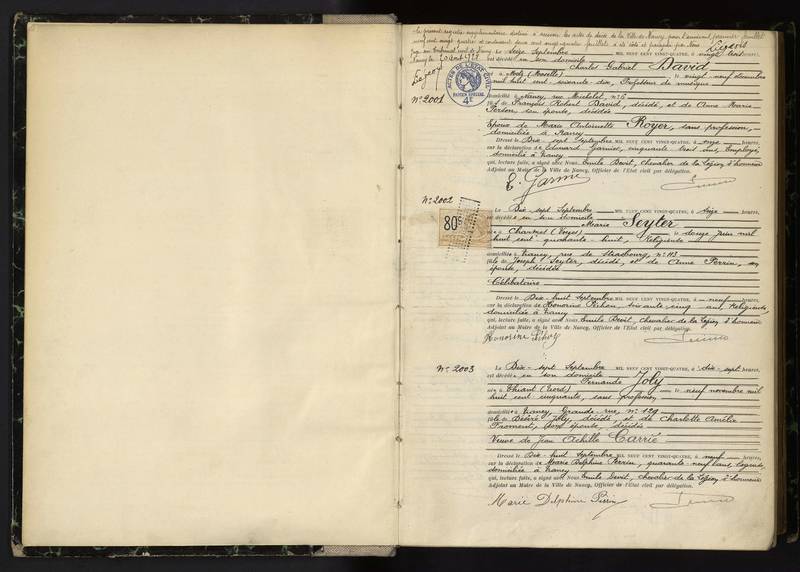 Le présent registre supplémentaire destiné à recevoir les actes de décès de la Ville de Nancy pour l'année mil
neuf cent vingt quatre et contenant deux cent feuillets a été coté et paraphé par Nous
Nancy le
ACTES DE L'ETAT CIVIL
PAPIER SPÉCIAL
4F
N° 2001
Le Seize Septembre MIL NEUF CENT VINGT-QUATRE, à vingt heures,
est décédé en son domicile
Charles Gabriel David
né à Metz (Moselle) le vingt-neuf décembre
mil huit cent soixante-dix, Professeur de musique
domicilié à Nancy, rue Michelet, n° 6
fils de François Robert David, décédé, et de Anne Marie
son épouse, décédée
Epoux de Marie Antoinette Royer, sans profession,
domiciliée à Nancy
Dressé le Dix-sept Septembre MIL NEUF CENT VINGT-QUATRE, à onze heures,
sur la déclaration de Edouard Garnier, cinquante ans, Employé,
domicilié à Nancy
qui, lecture faite, a signé avec Nous Emile Devit, Chevalier de la Légion d'honneur
Adjoint au Maire de la Ville de Nancy, Officier de l'Etat civil par délégation.
N° 2002
80c
Le Dix-sept Septembre MIL NEUF CENT VINGT-QUATRE, à seize heures,
est décédée en son domicile
Marie Seyter
née à Charmes (Vosges) le douze Juin mil
huit cent quarante-huit, Religieuse
domiciliée à Nancy, rue de Strasbourg, n° 113
fille de Joseph Seyter, décédé, et de Anne Perrin, son
épouse, décédée
Célibataire
Dressé le Dix-huit Septembre MIL NEUF CENT VINGT-QUATRE, à neuf heures,
sur la déclaration de Honorine, soixante-cinq ans, Religieuse,
domiciliée à Nancy
qui, lecture faite, a signé avec Nous Emile Devit, Chevalier de la Légion d'honneur
Adjoint au Maire de la Ville de Nancy, Officier de l'Etat civil par délégation.
Honorine
N° 2003
Le Dix-sept Septembre MIL NEUF CENT VINGT-QUATRE, à dix-sept heures,
est décédée en son domicile
Fernande Joly
née à Thiant (Nord) le neuf novembre mil
huit cent cinquante, sans profession
domiciliée à Nancy, Grande-rue, n° 129
fille de Désiré Joly, décédé, et de Charlotte Amélie
Froment, son épouse, décédée
Veuve de Jean Achille Carrié
Dressé le Dix-huit Septembre MIL NEUF CENT VINGT-QUATRE, à neuf heures,
sur la déclaration de Marie Delphine Perrin, quarante-neuf ans,
domiciliée à Nancy
qui, lecture faite, a signé avec Nous Emile Devit, Chevalier de la Légion d'honneur
Adjoint au Maire de la Ville de Nancy, Officier de l'Etat civil par délégation.
Marie Delphine Perrin